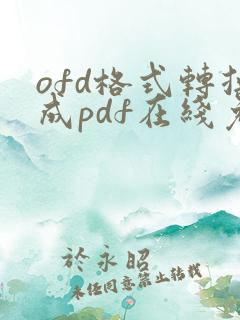 ofd格式轉
成pdf在綫
於永昭
未经同意禁止转载